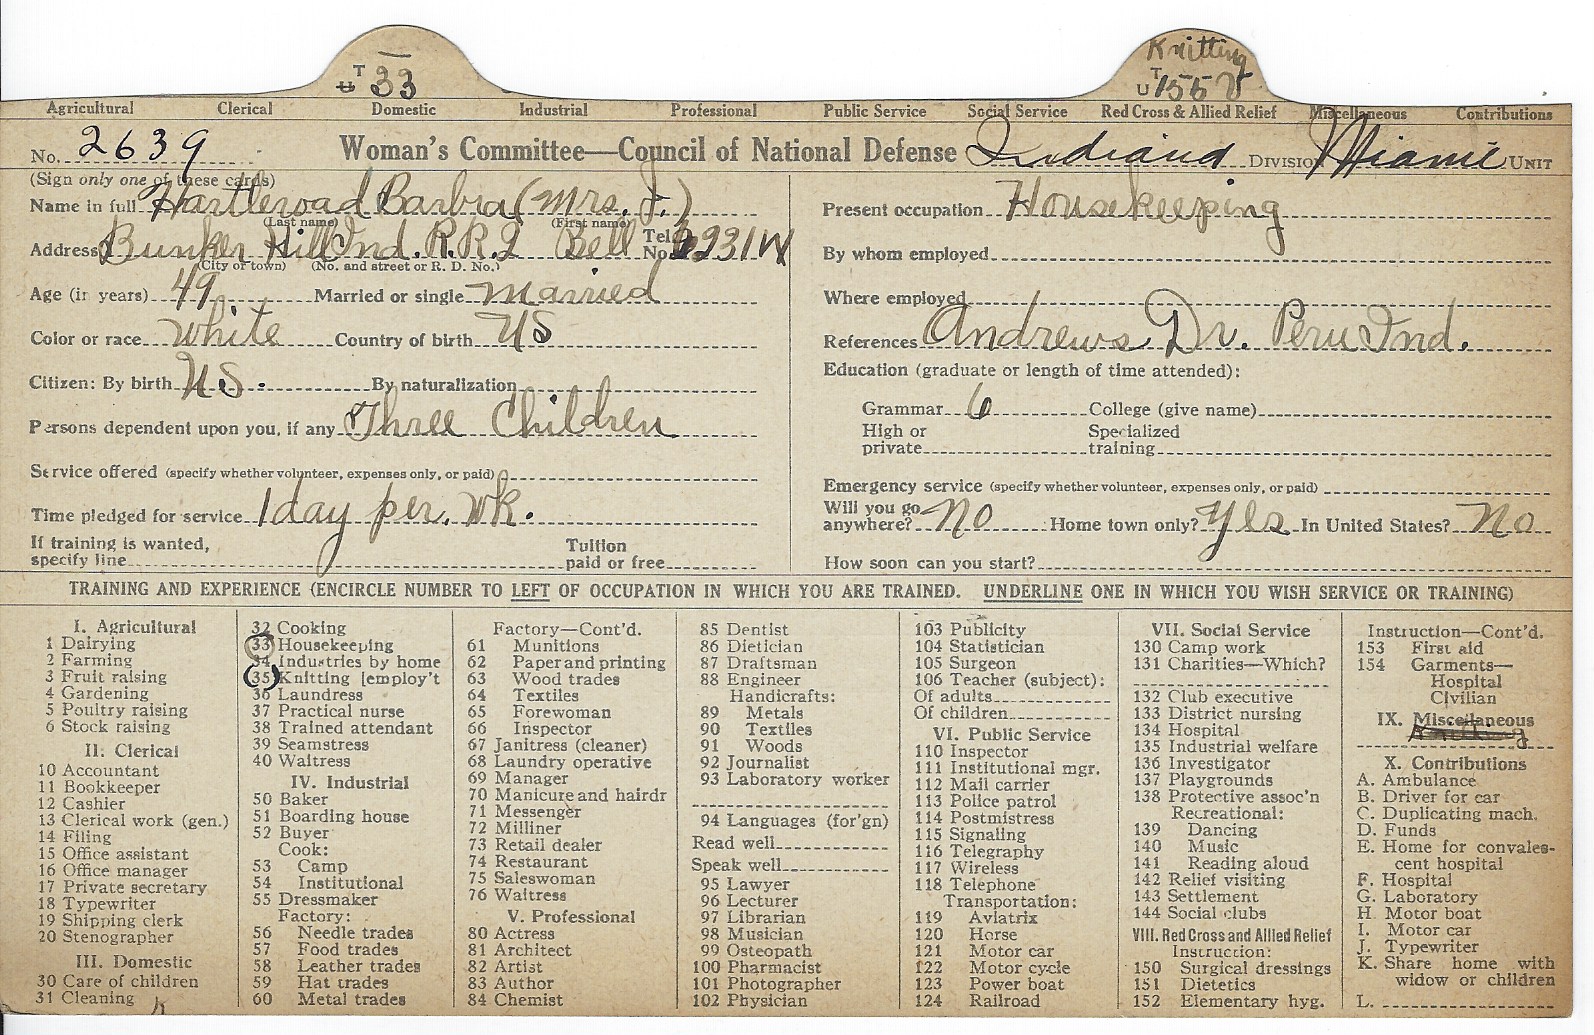 T
U 33
Knitting
T
U 155 V
Agricultural Clerical Domestic Industrial Professional Public Service Social Service Red Cross & Allied Relief Miscellaneous Contributions
No. 2639 Woman's Committee—Council of National Defense Indiana DIVISION Miami UNIT
(Sign only one of these cards)
Name in full Hartleroad Barbra (Mrs. J.)
(Last name) (First name)
Address Bunker Hill Ind. R.R.2 Bell Tel. No. 2231W
(City or town) (No. and street or R. D. No.)
Age (in years) 49 Married or single Married
Color or race White Country of birth US
Citizen: By birth US. By naturalization
Persons dependent upon you, if any Three Children
Service offered (specify whether volunteer, expenses only, or paid)
Time pledged for service 1 day per. wk.
If training is wanted, specify line Tuition paid or free
Present occupation Housekeeping
By whom employed
Where employed
References Andrews Dr. Peru Ind.
Education (graduate or length of time attended):
Grammar 6 College (give name)
High or private Specialized training
Emergency service (specify whether volunteer, expenses only, or paid)
Will you go anywhere? No Home town only? Yes In United States? No
How soon can you start?
TRAINING AND EXPERIENCE (ENCIRCLE NUMBER TO LEFT OF OCCUPATION IN WHICH YOU ARE TRAINED. UNDERLINE ONE IN WHICH YOU WISH SERVICE OR TRAINING)
I. Agricultural
1 Dairying
2 Farming
3 Fruit raising
4 Gardening
5 Poultry raising
6 Stock raising
II. Clerical
10 Accountant
11 Bookkeeper
12 Cashier
13 Clerical work (gen.)
14 Filing
15 Office assistant
16 Office manager
17 Private secretary
18 Typewriter
19 Shipping clerk
20 Stenographer
III. Domestic
30 Care of children
31 Cleaning
32 Cooking
33 Housekeeping
34 Industries by home
35 Knitting [employ't
36 Laundress
37 Practical nurse
38 Trained attendant
39 Seamstress
40 Waitress
IV. Industrial
50 Baker
51 Boarding house
52 Buyer
Cook:
53 Camp
54 Institutional
55 Dressmaker
Factory:
56 Needle trades
57 Food trades
58 Leather trades
59 Hat trades
60 Metal trades
Factory—Cont'd.
61 Munitions
62 Paper and printing
63 Wood trades
64 Textiles
65 Forewoman
66 Inspector
67 Janitress (cleaner)
68 Laundry operative
69 Manager
70 Manicure and hairdr
71 Messenger
72 Milliner
73 Retail dealer
74 Restaurant
75 Saleswoman
76 Waitress
V. Professional
80 Actress
81 Architect
82 Artist
83 Author
84 Chemist
85 Dentist
86 Dietician
87 Draftsman
88 Engineer
Handicrafts:
89 Metals
90 Textiles
91 Woods
92 Journalist
93 Laboratory worker
94 Languages (for'gn)
Read well
Speak well
95 Lawyer
96 Lecturer
97 Librarian
98 Musician
99 Osteopath
100 Pharmacist
101 Photographer
102 Physician
103 Publicity
104 Statistician
105 Surgeon
106 Teacher (subject):
Of adults
Of children
VI. Public Service
110 Inspector
111 Institutional mgr.
112 Mail carrier
113 Police patrol
114 Postmistress
115 Signaling
116 Telegraphy
117 Wireless
118 Telephone
Transportation:
119 Aviatrix
120 Horse
121 Motor car
122 Motor cycle
123 Power boat
124 Railroad
VII. Social Service
130 Camp work
131 Charities—Which?
132 Club executive
133 District nursing
134 Hospital
135 Industrial welfare
136 Investigator
137 Playgrounds
138 Protective assoc'n
Recreational:
139 Dancing
140 Music
141 Reading aloud
142 Relief visiting
143 Settlement
144 Social clubs
VIII. Red Cross and Allied Relief
Instruction:
150 Surgical dressings
151 Dietetics
152 Elementary hyg.
Instruction—Cont'd.
153 First aid
154 Garments—
Hospital
Civilian
IX. Miscellaneous
Knitting
X. Contributions
A. Ambulance
B. Driver for car
C. Duplicating mach.
D. Funds
E. Home for convales-
cent hospital
F. Hospital
G. Laboratory
H. Motor boat
I. Motor car
J. Typewriter
K. Share home with
widow or children
L.